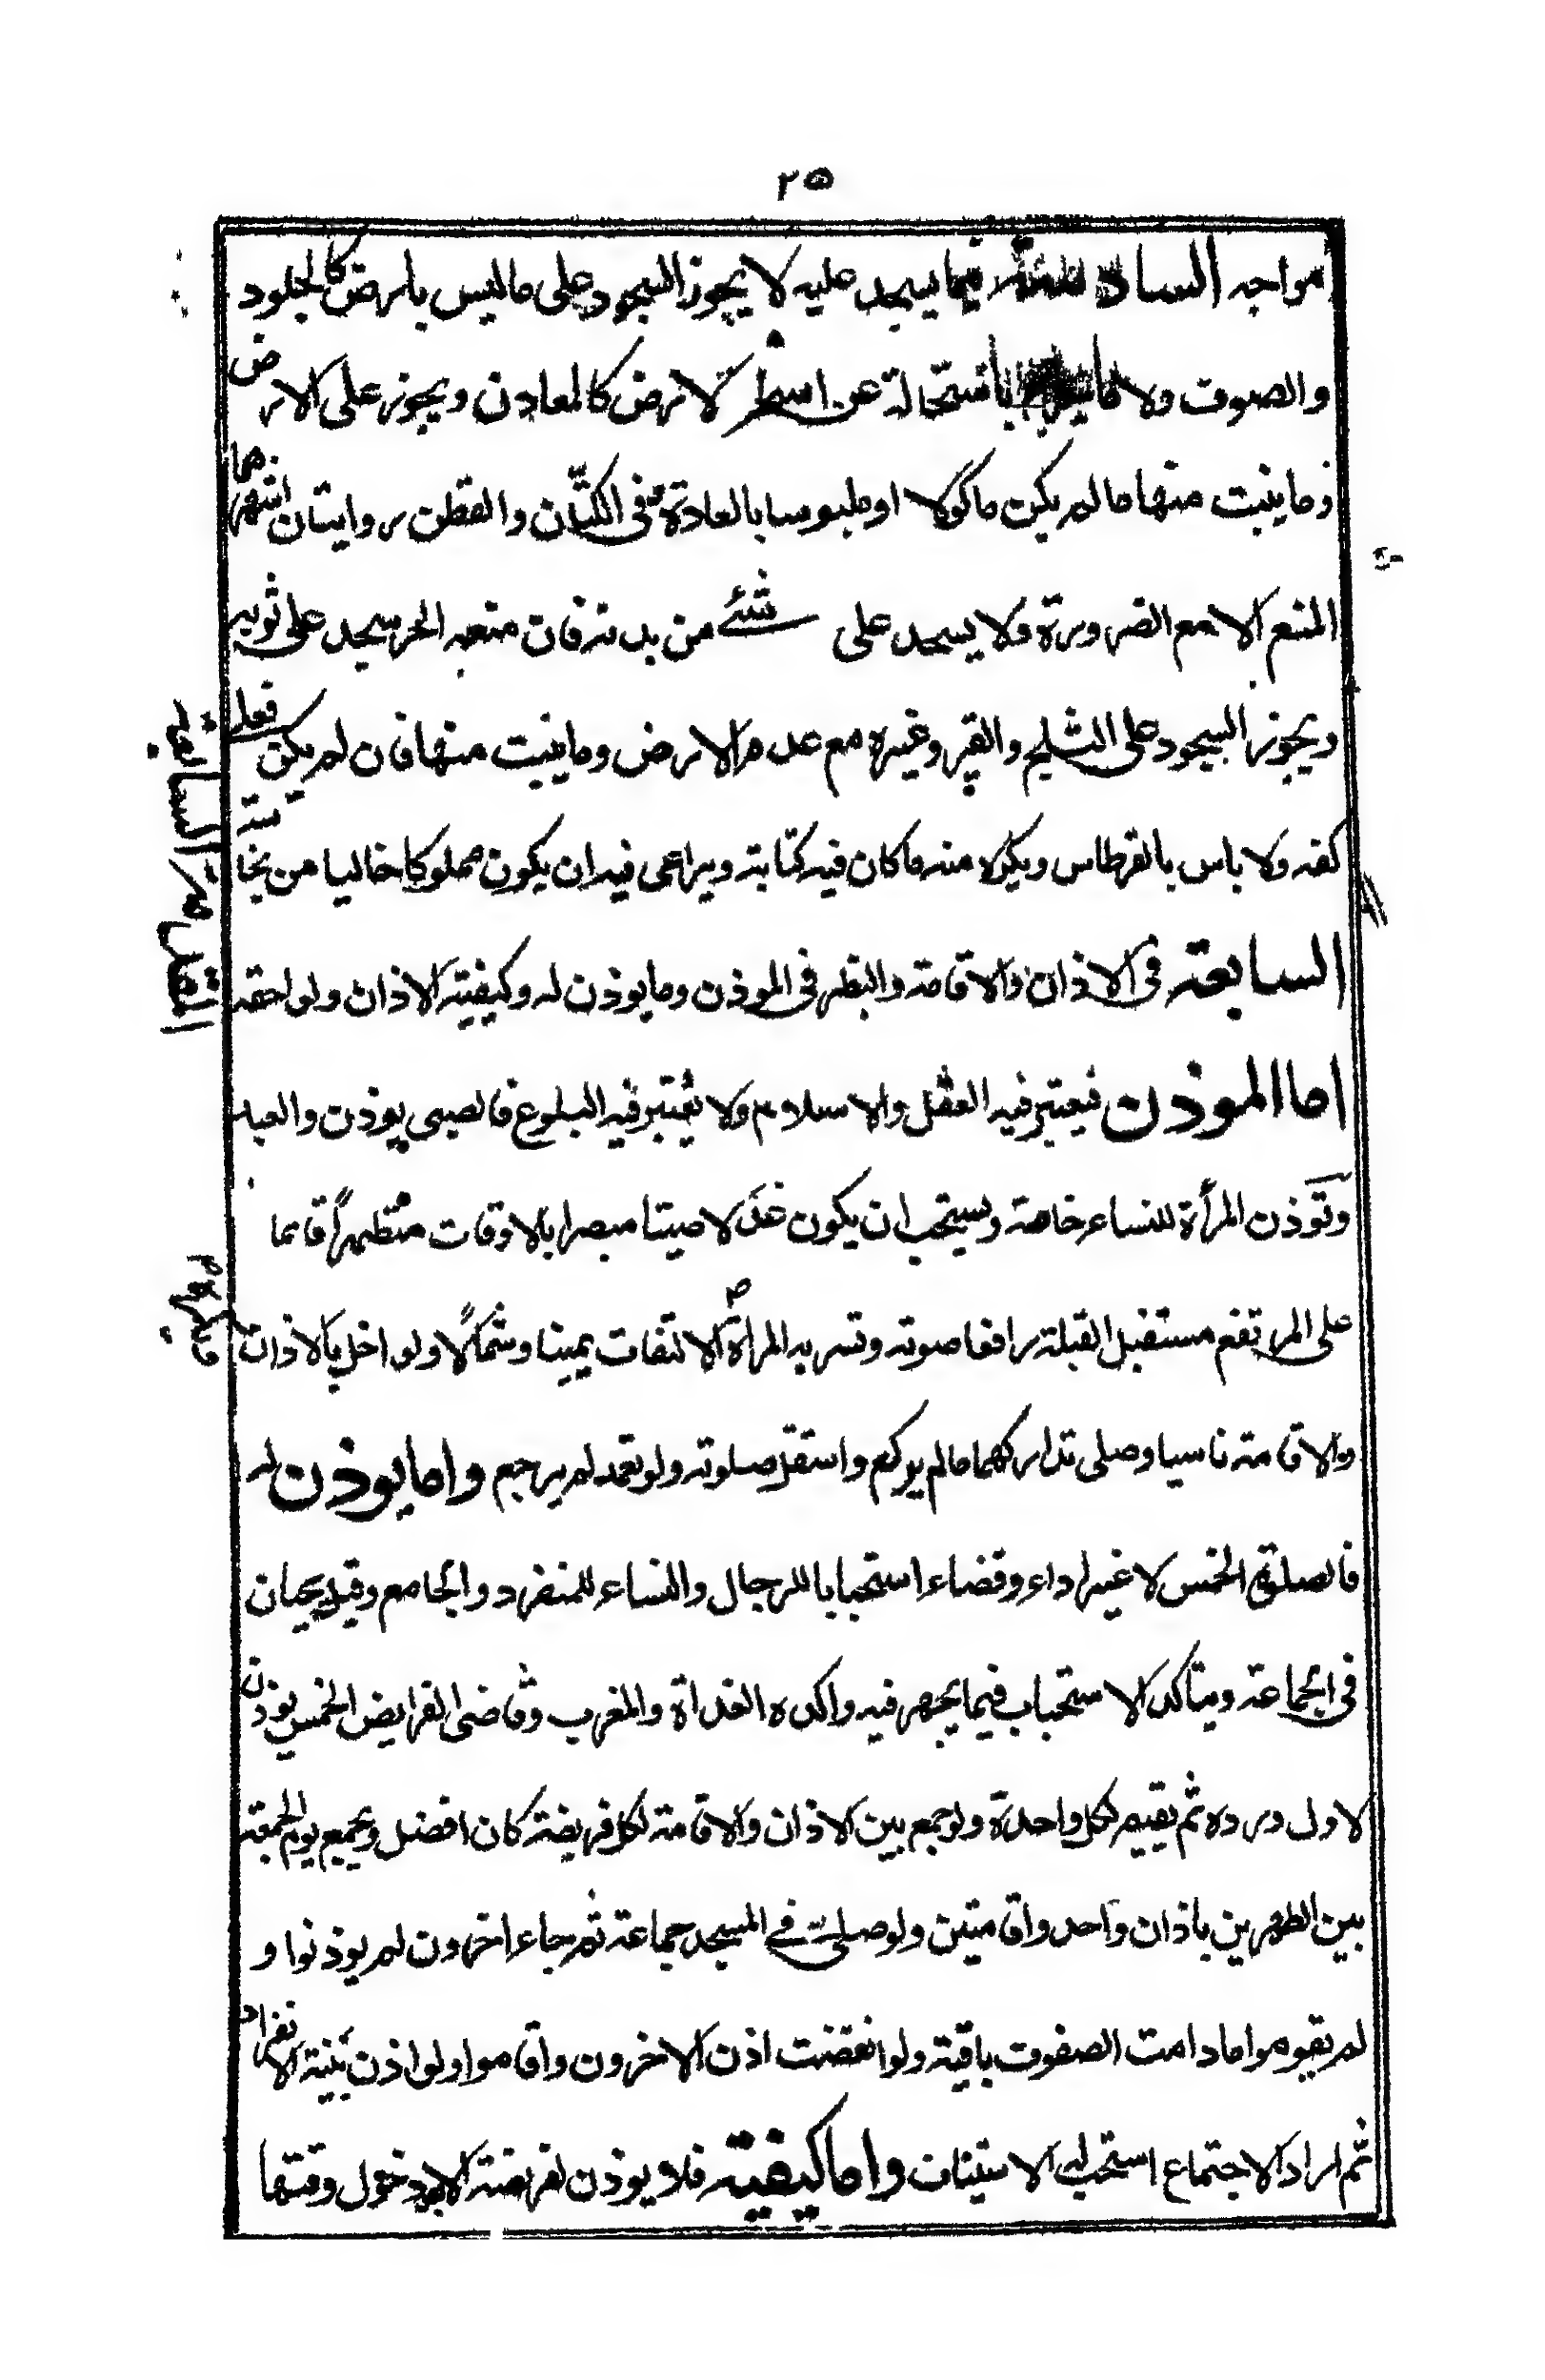 ٢٥
مواجه السادسة فيما يسجد عليه لا يجوز السجود على ما ليس بارض كالجلود
والصوف ولا ما باستحالة عن اسم لارض كالمعادن ويجوز على الارض
وما ينبت منها ما لم يكن ماكولا او ملبوسا بالعادة وفى الكتّان والقطن روايتان اشهرهما
المنع الا مع الضرورة ولا يسجد على شئے من بدنه فان منعه الحر سجد على ثوبه
ويجوز السجود على الثلج والقير وغيره مع عدم الارض وما ينبت منها فان لم يكن فعلى
كفه ولا باس بالقرطاس ويكره منه ما كان فيه كتابته ويراعى فيه ان يكون مملوكا خاليا من نجاسته
السابعة فى الاذان والاقامة والنظر فى الموذن وما يوذن له وكيفيته الاذان ولواحقه
اما الموذن فيعتبر فيه العقل والاسلام ولا يعتبر فيه البلوغ فالصبى يوذن والعبد
وتوذن المرأة للنساء خاصة ويستحب ان يكون عدلا صيتا مبصرا بالاوقات متطهراً قائما
على المرتفع مستقبل القبلة رافعا صوته وتسر به المراة الالتفات يمينا وشمالاً ولو اخل بالاذان
والاقامته ناسيا وصلى تداركهما مالم يركع واستقبل صلوته ولو تعمد لم يرجع واما يوذن له
فالصلوة الخمس لا غير اداء وقضاء استحبابا للرجال والنساء للمنفرد والجامع وقيل يجبان
فى الجماعته ويتاكد الاستحباب فيما يجهر فيه واكده الغداة والمغرب وقاضى الفرايض الخمس يوذن
لاول ورده ثم يقيم لكل واحدة ولو جمع بين الاذان والاقامته لكل فريضته كان افضل ويجمع يوم الجمعته
بين الظهرين باذان واحد واقامتين ولو صلى فے المسجد جماعة ثم جاء اخرون لم يوذنوا و
لم يقوموا مادامت الصفوف باقيته ولو انفضت اذن الاخرون واقاموا ولو اذن بنية الانفراد
ثم اراد الاجتماع استحب له الاستيناف واما كيفيته فلا يوذن لفريضته الا بعد دخول وقتها